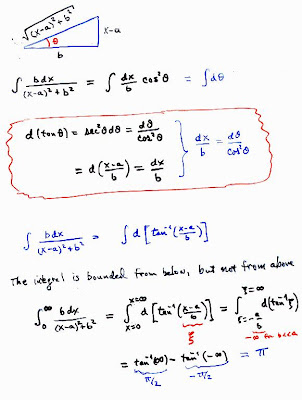 √(x-a)²+b²
x-a
θ
b
∫ b dx / (x-a)²+b² = ∫ dx/b cos²θ = ∫ dθ
d(tanθ) = sec²θ dθ = dθ/cos²θ
= d(x-a/b) = dx/b
dx/b = dθ/cos²θ
∫ b dx / (x-a)²+b² = ∫ d[tan⁻¹(x-a/b)]
The integral is bounded from below, but not from above
∫₀^∞ b dx / (x-a)²+b² = ∫_{x=0}^{x=∞} d[tan⁻¹(x-a/b)] = ∫_{ξ=-a/b}^{ξ=∞} d(tan⁻¹ξ)
ξ
-∞ for b<<a
= tan⁻¹(∞) - tan⁻¹(-∞) = π
π/2
-π/2